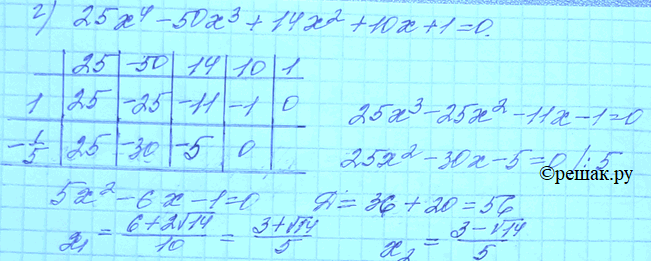 г) 25x⁴ - 50x³ + 14x² + 10x + 1 = 0.
25 | -50 | 14 | 10 | 1
1 | 25 | -25 | -11 | -1 | 0
-1/5 | 25 | -30 | -5 | 0
25x³ - 25x² - 11x - 1 = 0
25x² - 30x - 5 = 0 /:5
©решак.ру
5x² - 6x - 1 = 0
Д = 36 + 20 = 56
x₁ = (6 + 2√14)/10 = (3 + √14)/5
x₂ = (3 - √14)/5